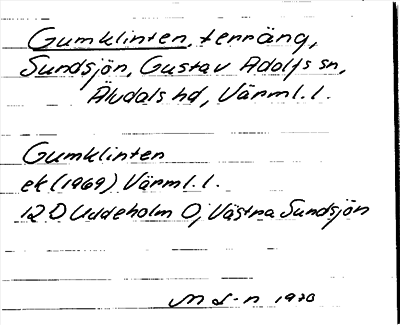 Gumklinten, terräng,
Sundsjön, Gustav Adolfs sn,
Älvdals hd, Värml. l.
Gumklinten
ek (1969) Värml. l.
12 D Uddeholm O, Västra Sundsjön
1970